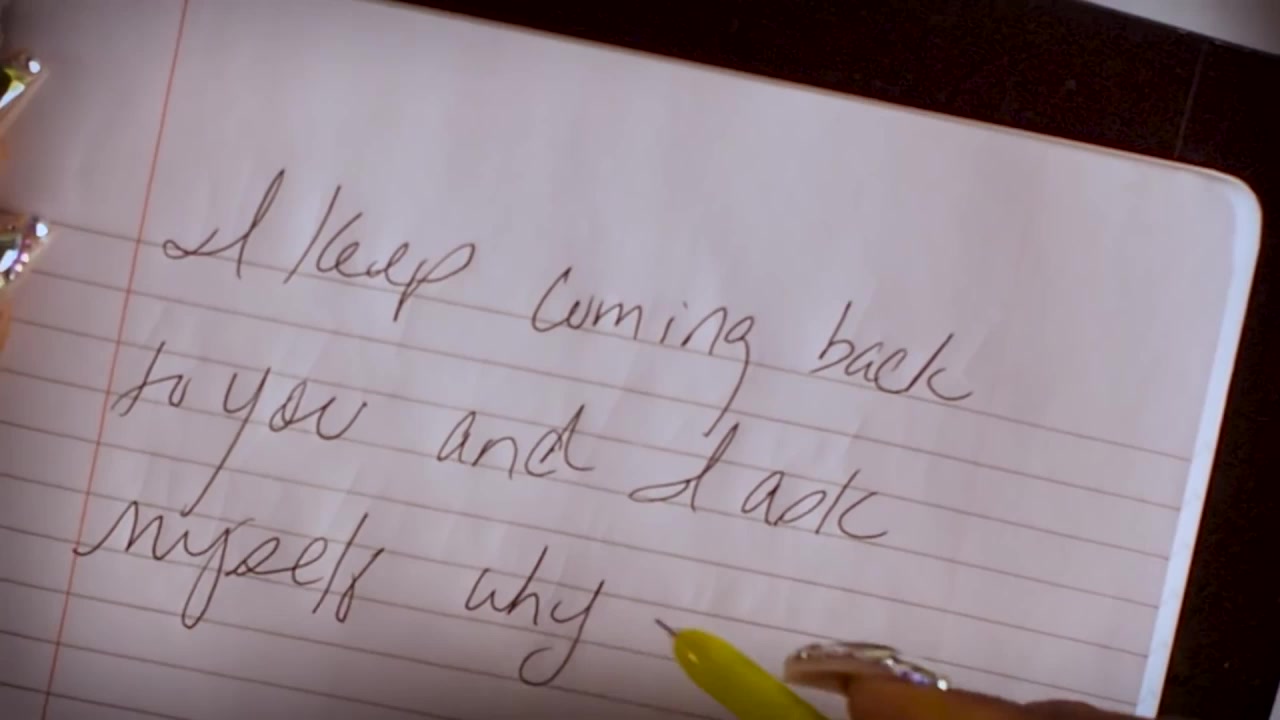 I keep coming back
to you and I ask
myself why